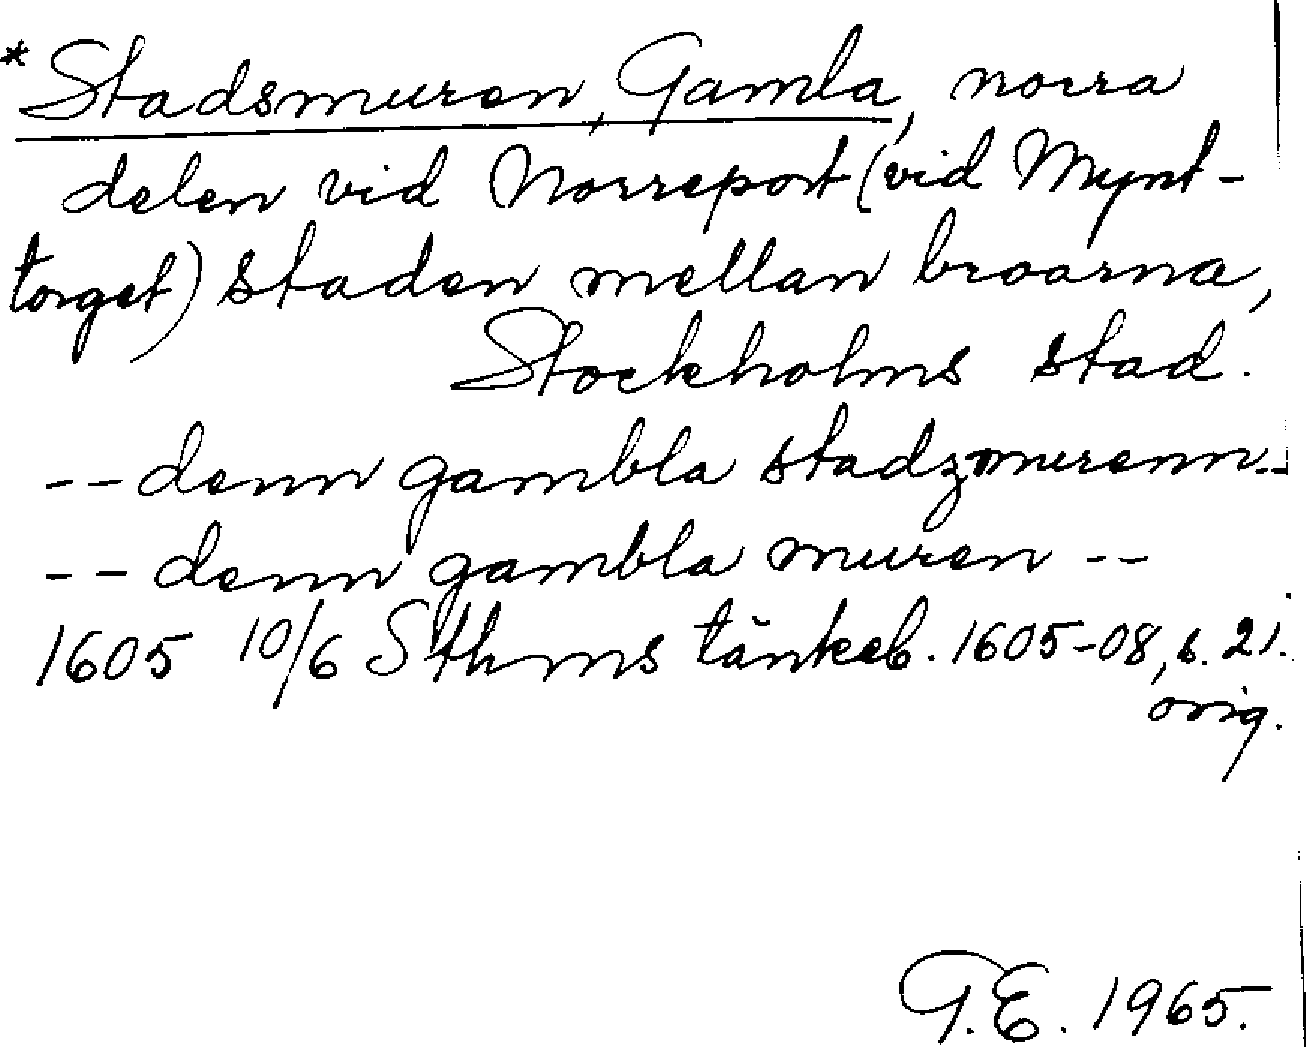 *Stadsmuren, Gamla, norra
delen vid Norreport (vid Mynt-
torget) staden mellan broarna,
Stockholms stad.
-- denn gambla stadzmurenn --
-- denn gambla muren --
1605 10/6 Sthms tänkeb. 1605-08, s. 21.
orig.
G.E. 1965.